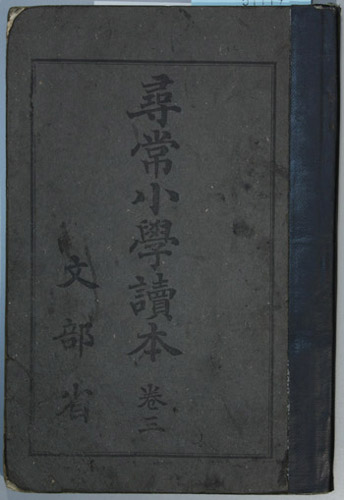 尋常小學讀本 卷三
文部省